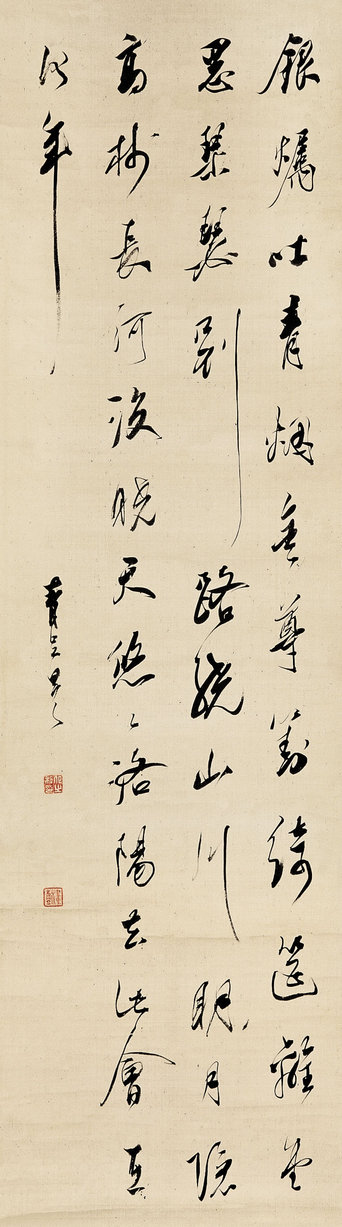 銀燭吐青烟金尊對綺筵離堂
思琴瑟別路繞山川明月隱
高樹長河没曉天悠〻洛陽去此會在
何年